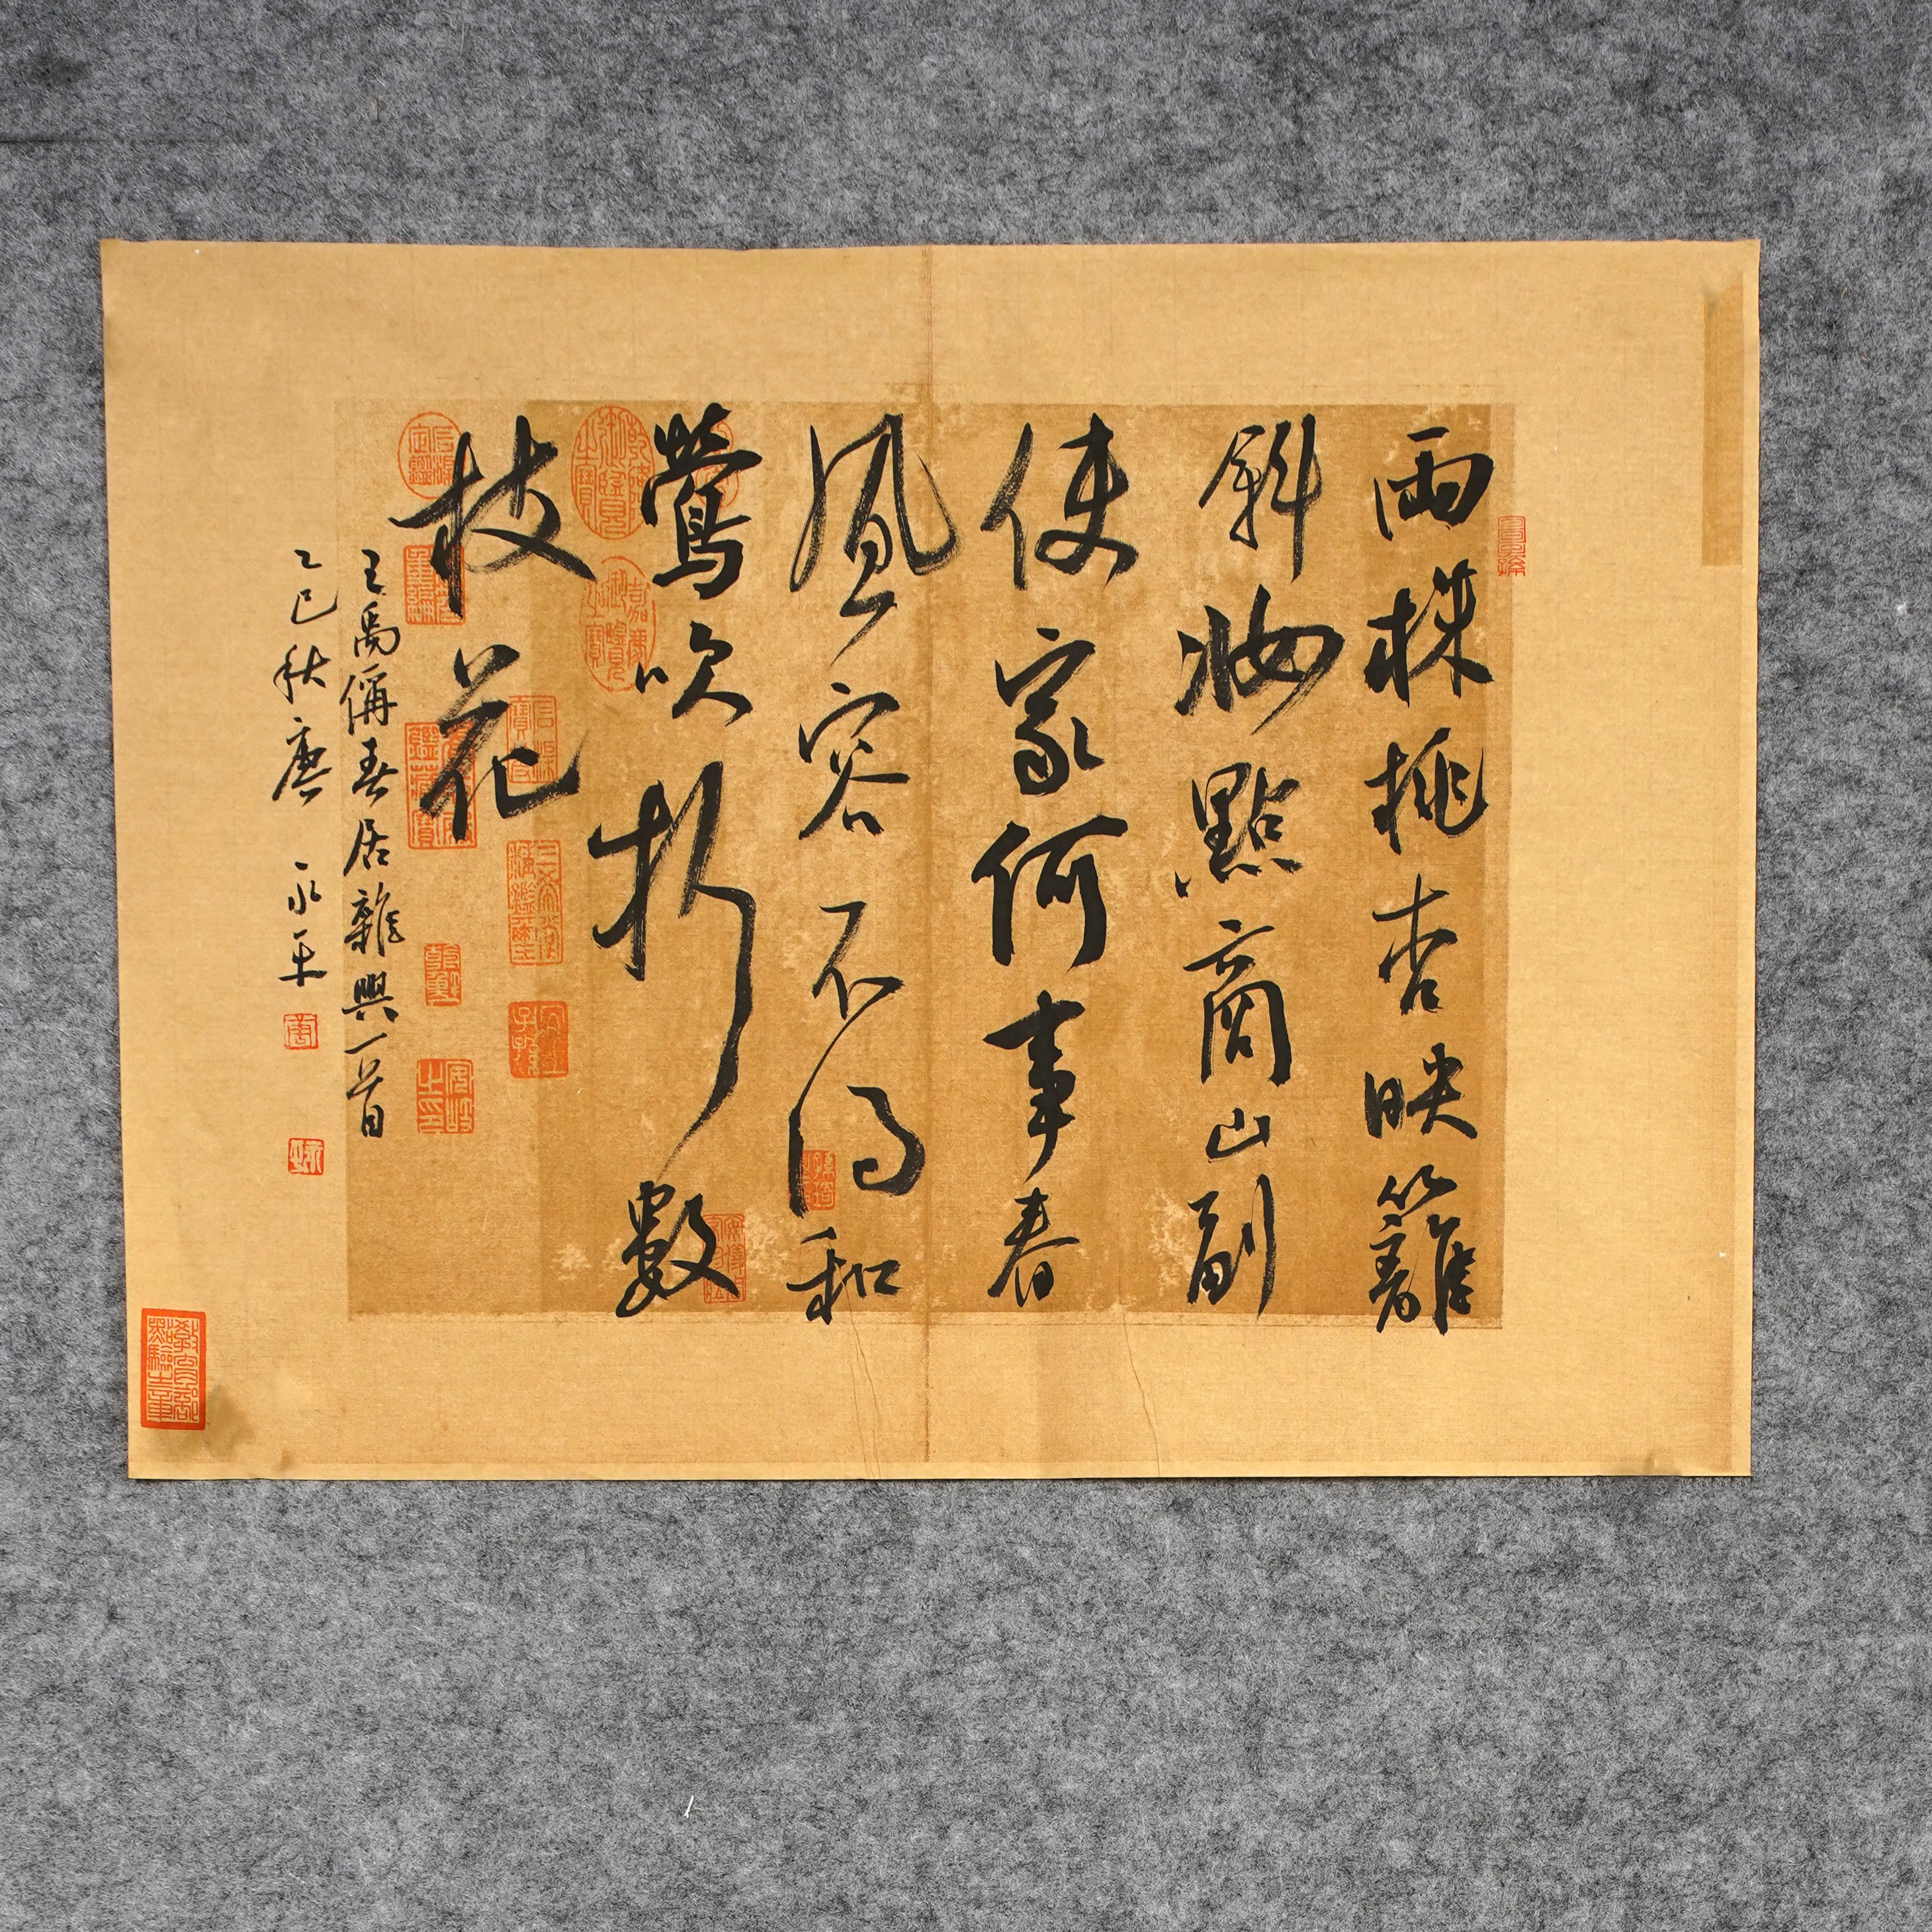 兩株桃杏映籬
斜妝點商山副
使家何事春
風容不得和
鶯吹折數
枝花
王禹偁春居雜興一首
乙巳秋唐永平